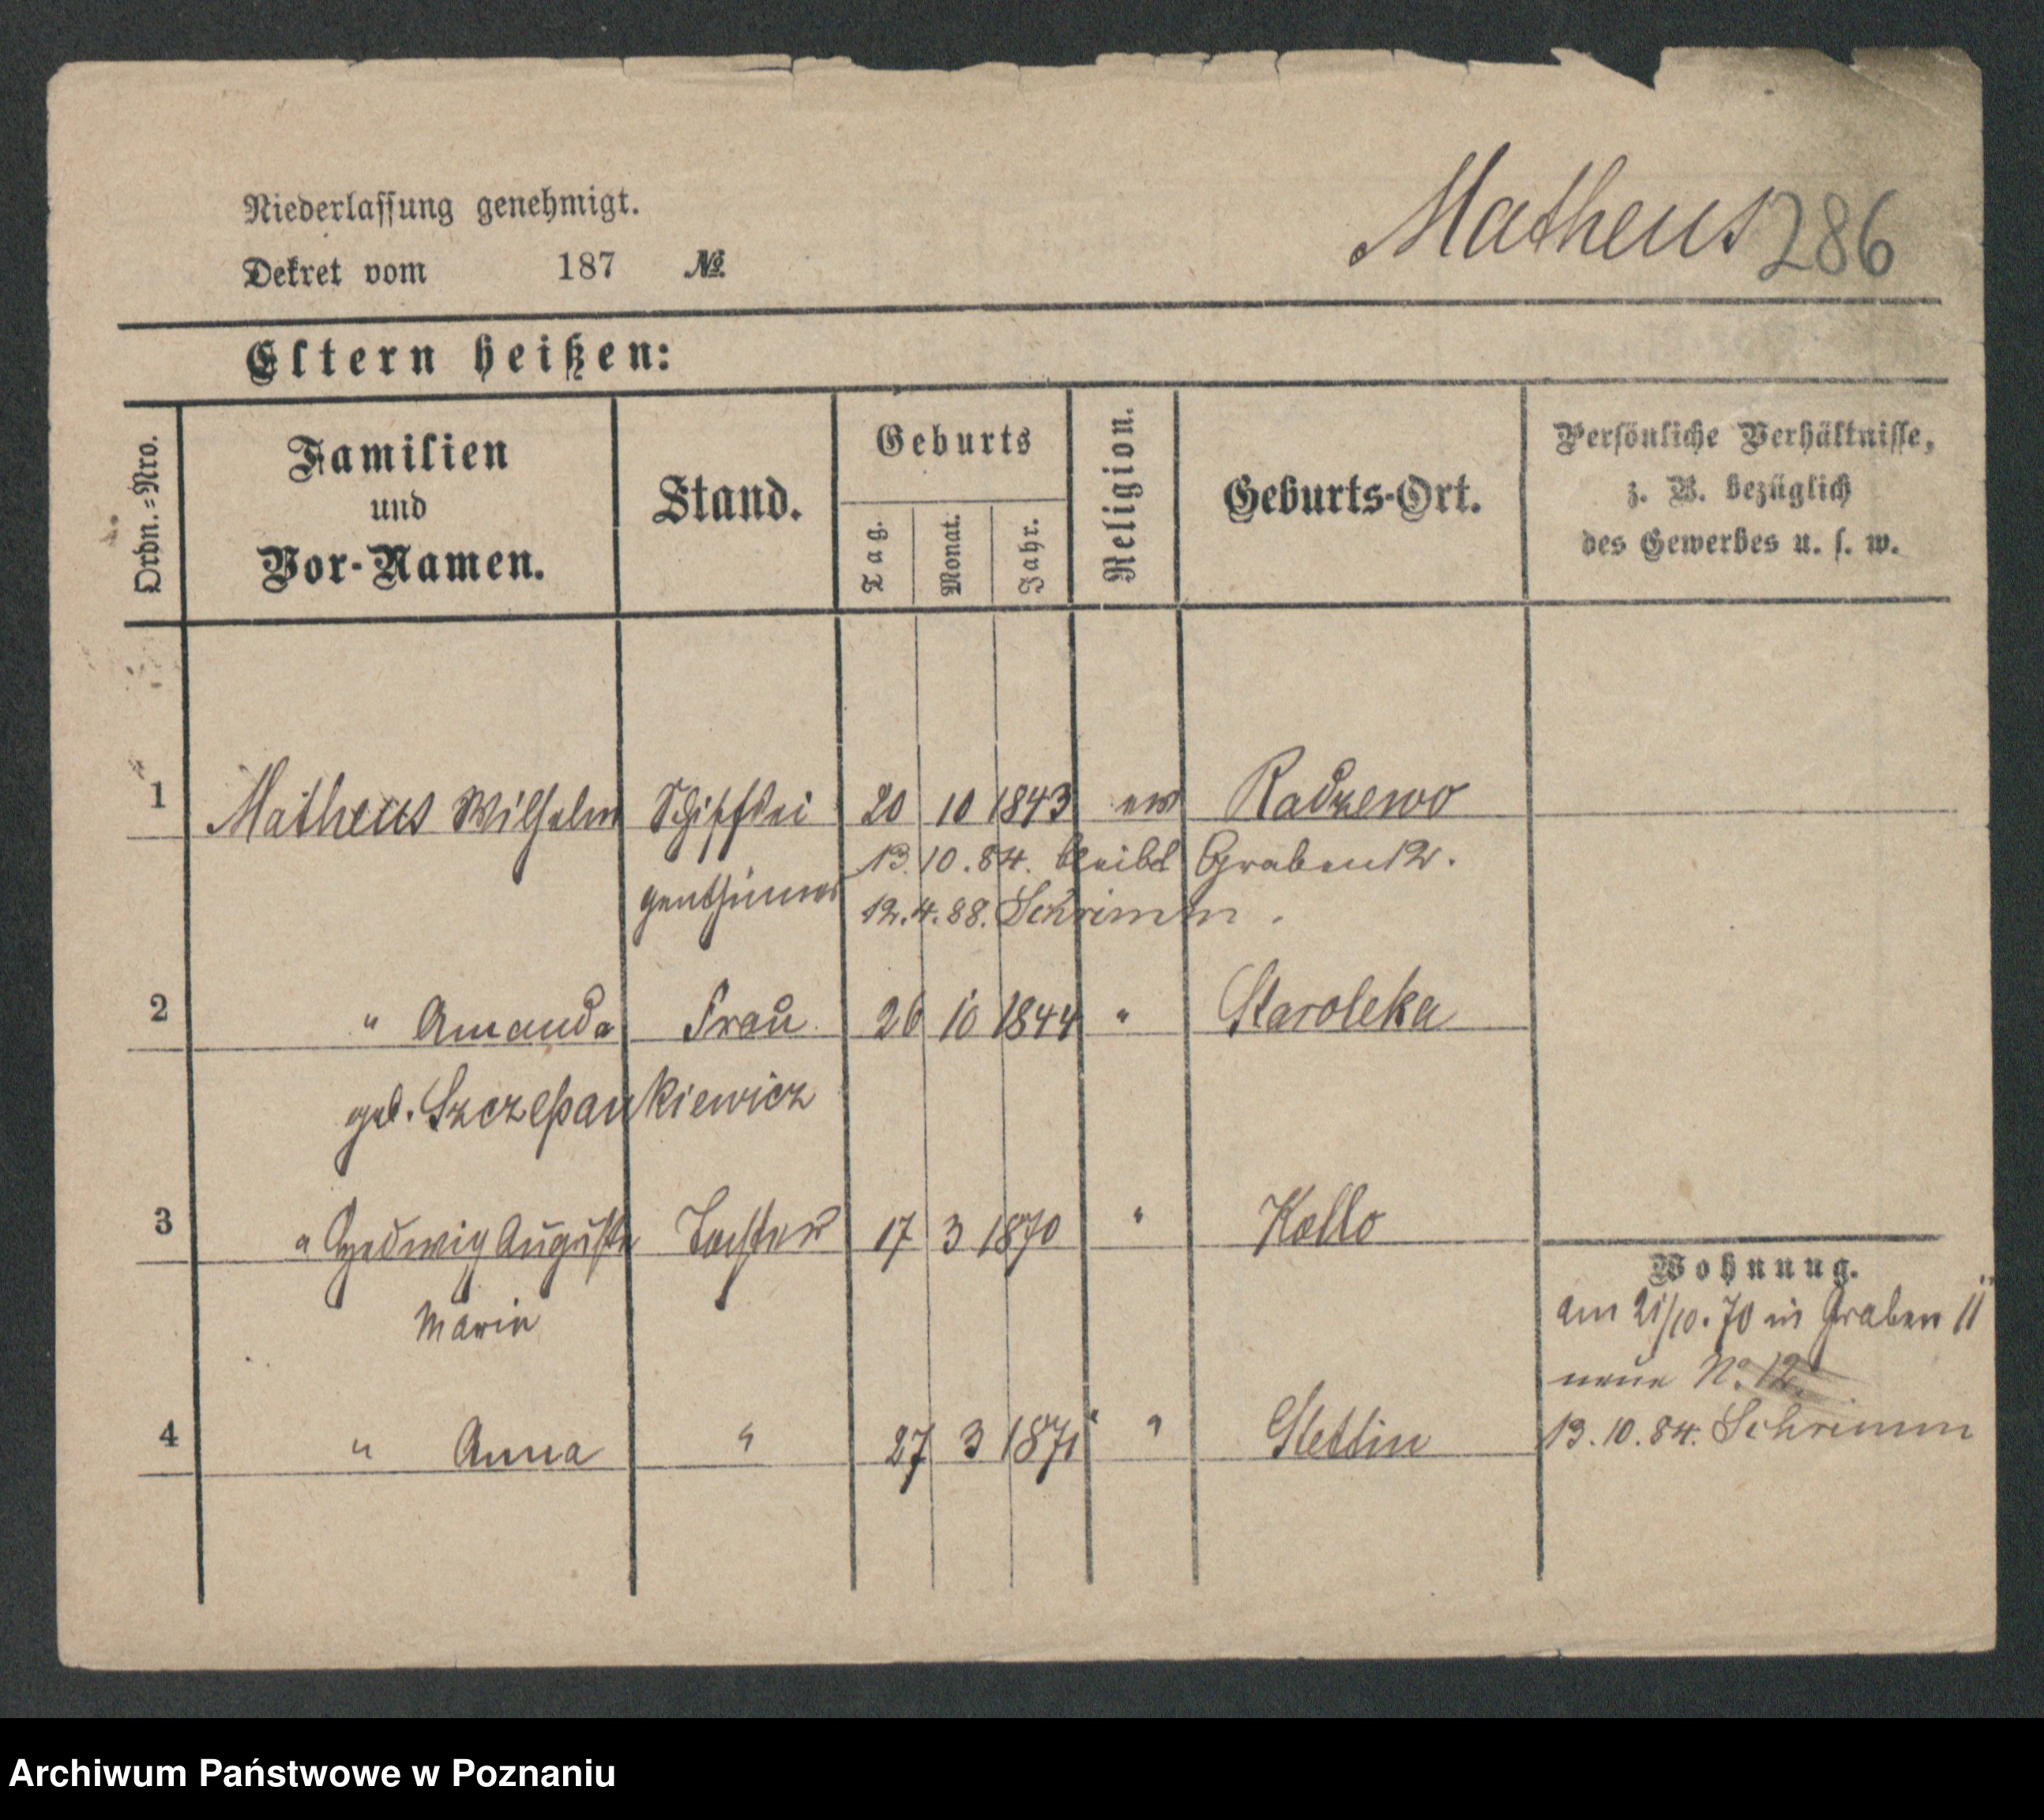 Matheus 286
Niederlassung genehmigt.
Dekret vom 187 №
Eltern heißen:
Ordn.=Nro.
Familien
und
Vor-Namen.
Stand.
Geburts
Tag.
Monat.
Jahr.
Religion.
Geburts-Ort.
Persönliche Verhältnisse,
z. B. bezüglich
des Gewerbes u. s. w.
1 Matheus Wilhelm Schiffsei 20 10 1843 ev Radzewo
13.10.84. bleibt Graben 12.
genthümer 12.4.88. Schrimm.
2 " Amanda Frau 26 10 1844 " Staroleka
geb. Szczepankiewicz
3 " Hedwig Auguste Tochter 17 3 1870 " Kollo
Marie
4 " Anna " 27 3 1871 " Stettin
Wohnung.
am 21/10.70 in Graben 11
neue No. 12.
13.10.84. Schrimm
Archiwum Państwowe w Poznaniu